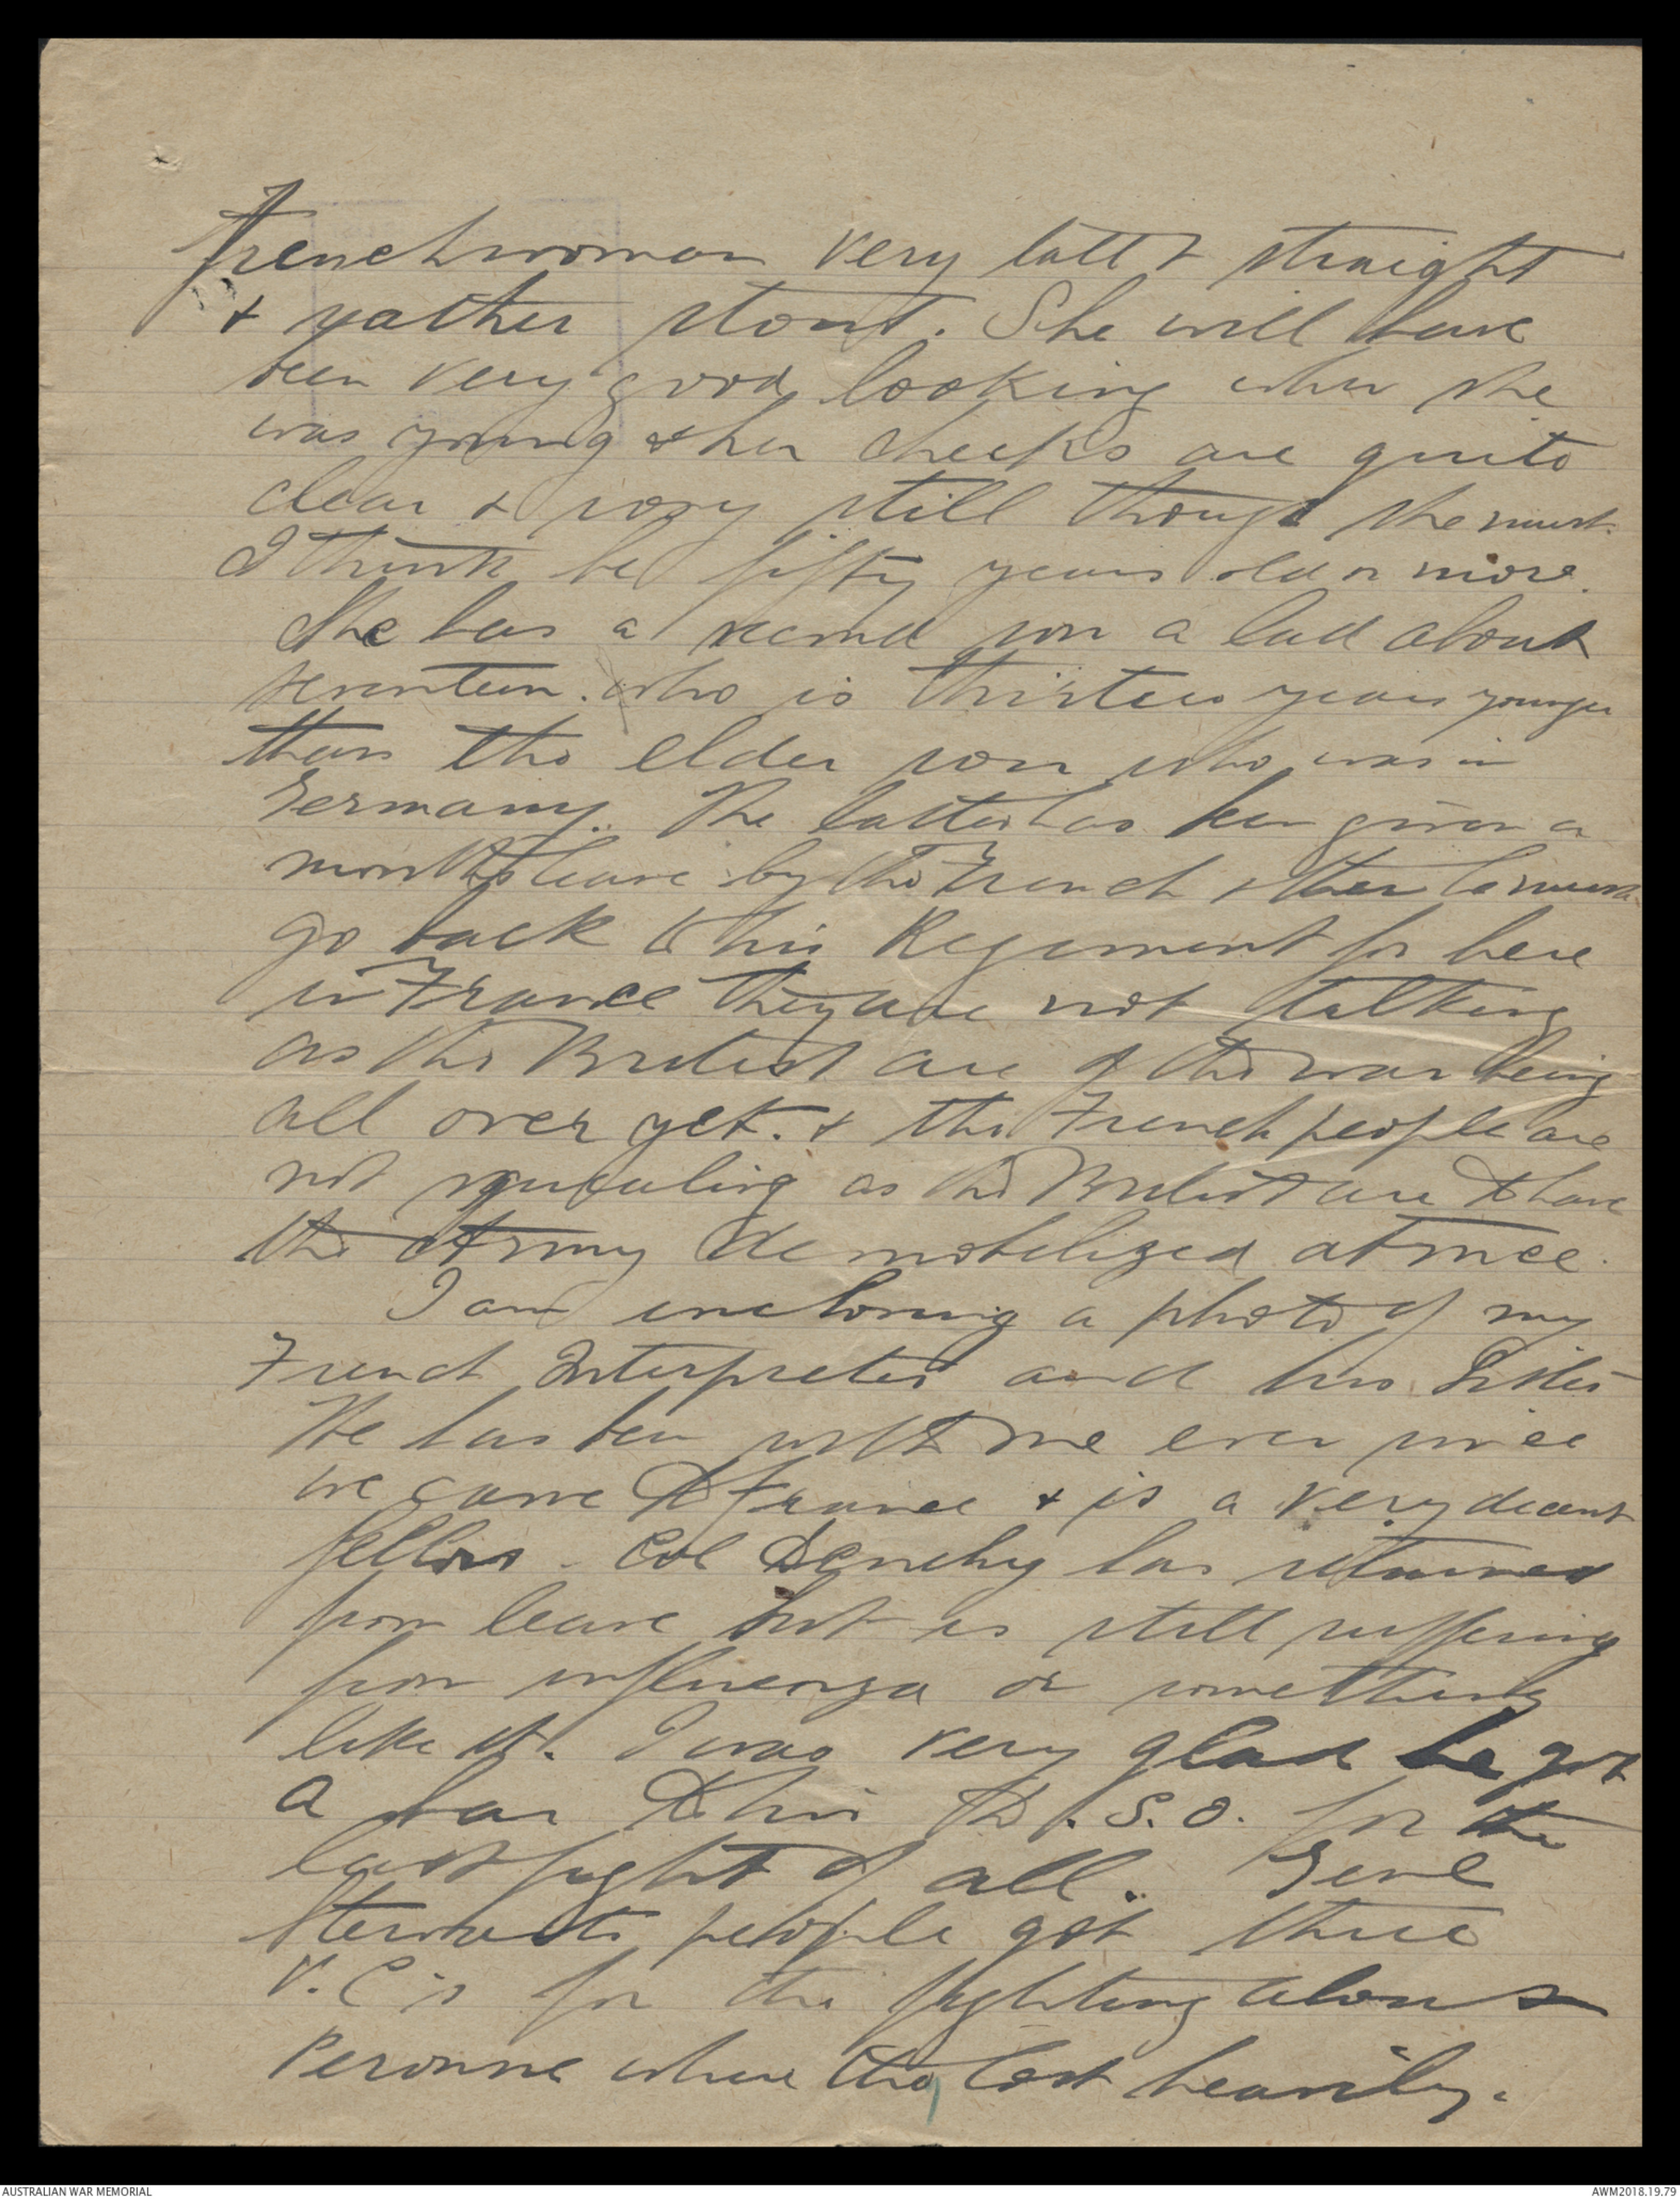 Frenchwoman very tall & straight
& rather stout. She will have
been very good looking when she
was young & her cheeks are quite
clear & rosy still though she must
I think be fifty years old or more.
She has a second son a lad about
seventeen. who is thirteen years younger
than the elder son who was in
Germany. The latter has been given a
month's leave by the French & then he must
go back to his Regiment for here
in France they are not talking
as the British are of the war being
all over yet. & the French people are
not squealing as the British are to have
the Army demobilized at once.
I am enclosing a photo of my
French Interpreter and his Sister
He has been with me ever since
we came to France & is a very decent
fellow. Col Denehy has returned
from leave but is still suffering
from influenza or something
like it. I was very glad he got
a bar to his D.S.O. for the
last fight of all. Genl
Stewarts people got three
V.C's for the fighting about
Peronne where they lost heavily.
AUSTRALIAN WAR MEMORIAL
AWM2018.19.79